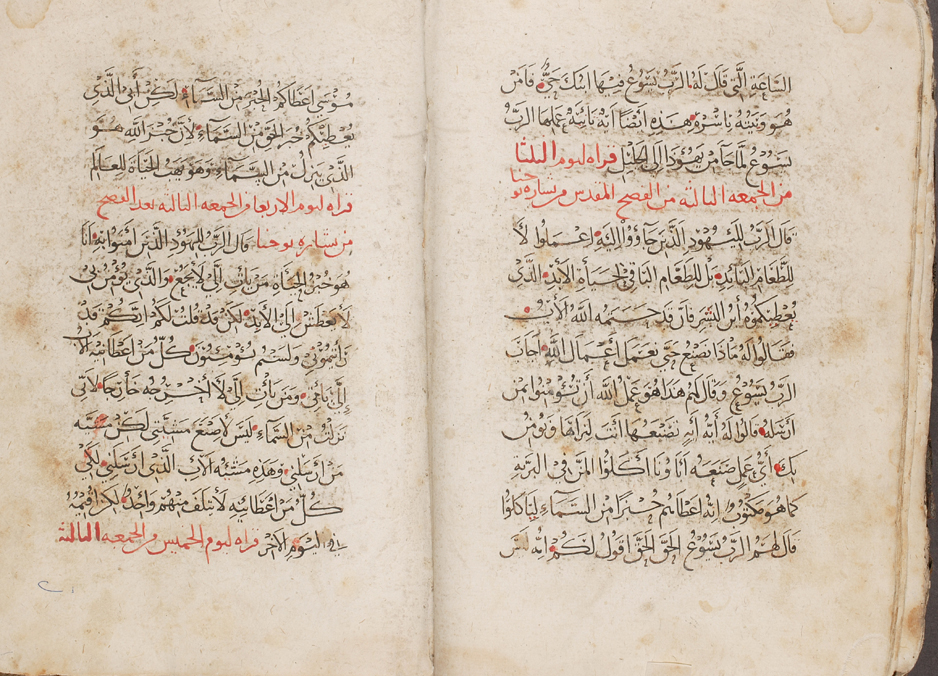 الساعة التي قال له الرب يسوع فيها ابنك حي فامن
هو وبيته باسره هذه ايضا اية ثانية عملها الرب
يسوع لما جا من يهودا الى الجليل قراه ليوم الثلثا
من الجمعه الثالثه من الفصح المقدس من بشاره يوحنا
قال الرب لليهود الذين جاؤوا اليه اعملوا لا
للطعام البائد بل للطعام الباقي لحياة الأبد الذي
يعطيكموه ابن البشر فان قد ختمه الله الأب
فقالوا له ماذا نصنع حتي نعمل اعمال الله اجاب
الرب يسوع وقال لهم هذا هو عمل الله أن تؤمنوا بمن
أرسله قالوا له أية آية تصنعها انت لنراها ونؤمن
بك أي عمل صنعت اباؤنا اكلوا المن في البرية
كما هو مكتوب انه اعطاهم خبزا من السماء لياكلوا
قال لهم الرب يسوع الحق الحق اقول لكم انه ليس
موسى اعطاكم الخبز من السماء لكن أبي الذي
يعطيكم خبز الحق من السماء لأن خبز الله هو
الذي ينزل من السماء وهو يهب الحياة للعالم
قراه ليوم الاربعا من الجمعه الثالثه بعد الفصح
من بشاره يوحنا قال الرب لليهود اللذين امنوا به انا
هو خبز الحياة من يات الي لا يجوع والذي يؤمن بي
لا يعطش إلى الأبد لكن قد قلت لكم انكم قد
رأيتموني ولستم تؤمنون كل من اعطانيه الأب
إلي يأتي ومن يأت الي لا اخرجه خارجا لاني
نزلت من السماء ليس لأصنع مشيئتي لكن مشيه
من ارسلني وهذه مشيئه الأب الذي ارسلني لكي
كل من اعطانيه لا يتلف منهم واحد لكن اقيمه
في اليوم الاخر قراه ليوم الخميس من الجمعه الثالثه